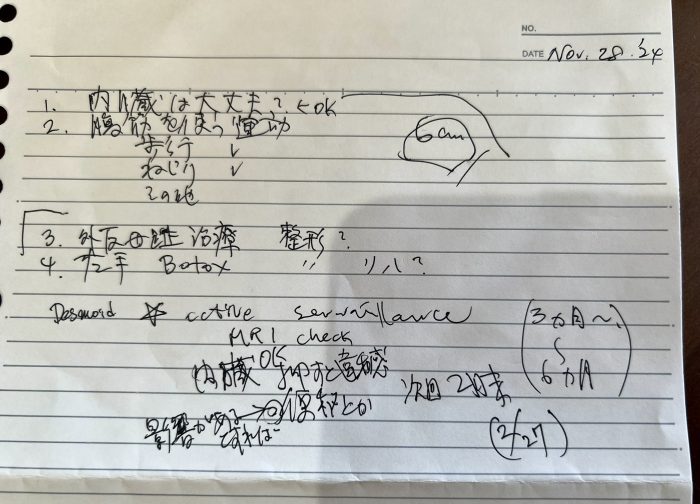 NO.
DATE Nov. 28. '24
1. 内臓は大丈夫? ←OK
2. 腹筋を使う運動
歩行 ✓
ねじり ✓
その他
6cm
3. 外反母趾 治療 整形?
4. 左手 Botox 〃 リハ?
Desmoid ☆ active surveillance
MRI check
(3ヵ月〜、
〜
6ヵ月)
内臓 OK 押すと違和感
次回 2月末
影響がある→
とか
すれば
(2/27)